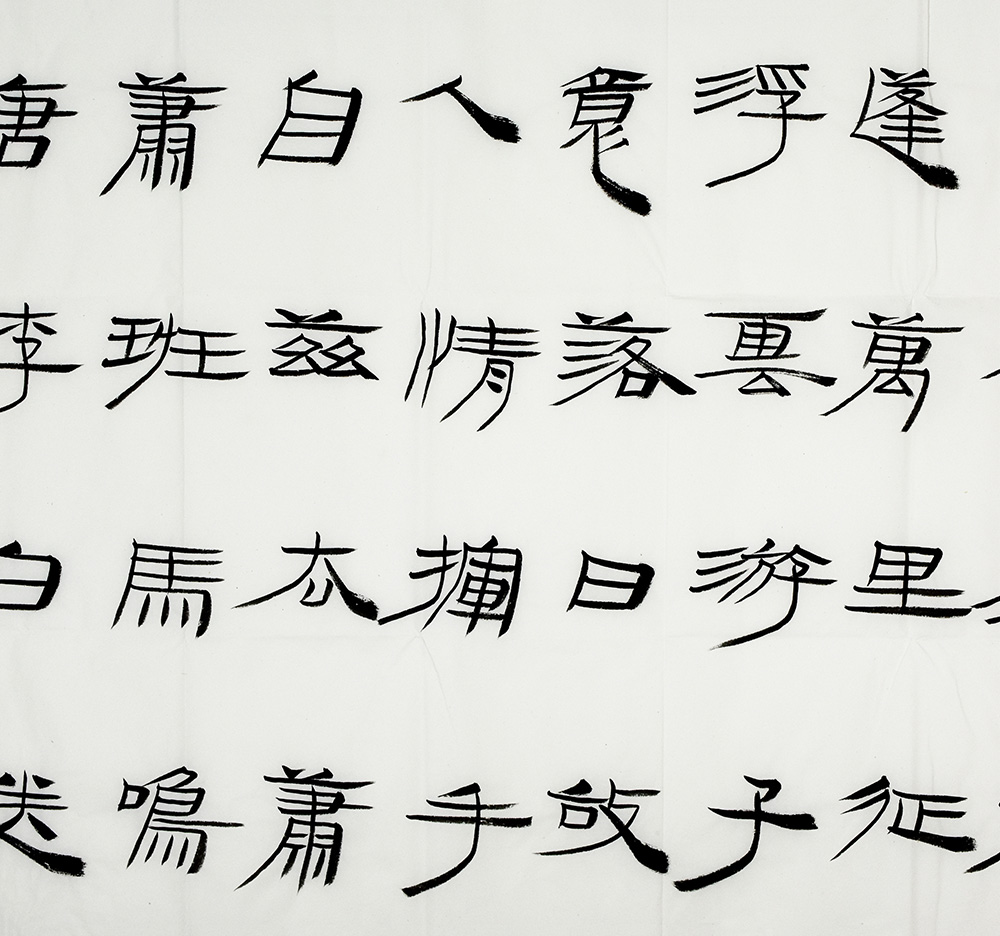 蓬萬里征
浮雲游子
意落日故
人情揮手
自茲去蕭
蕭班馬鳴
唐李白送